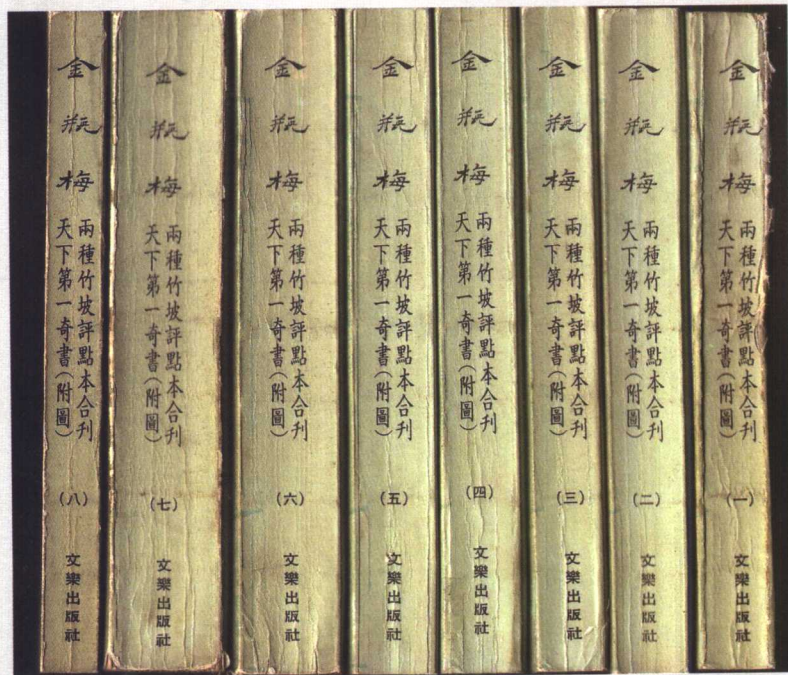 金瓶梅
兩種竹坡評點本合刊
天下第一奇書(附圖)
(一)
文樂出版社
金瓶梅
兩種竹坡評點本合刊
天下第一奇書(附圖)
(二)
文樂出版社
金瓶梅
兩種竹坡評點本合刊
天下第一奇書(附圖)
(三)
文樂出版社
金瓶梅
兩種竹坡評點本合刊
天下第一奇書(附圖)
(四)
文樂出版社
金瓶梅
兩種竹坡評點本合刊
天下第一奇書(附圖)
(五)
文樂出版社
金瓶梅
兩種竹坡評點本合刊
天下第一奇書(附圖)
(六)
文樂出版社
金瓶梅
兩種竹坡評點本合刊
天下第一奇書(附圖)
(七)
文樂出版社
金瓶梅
兩種竹坡評點本合刊
天下第一奇書(附圖)
(八)
文樂出版社